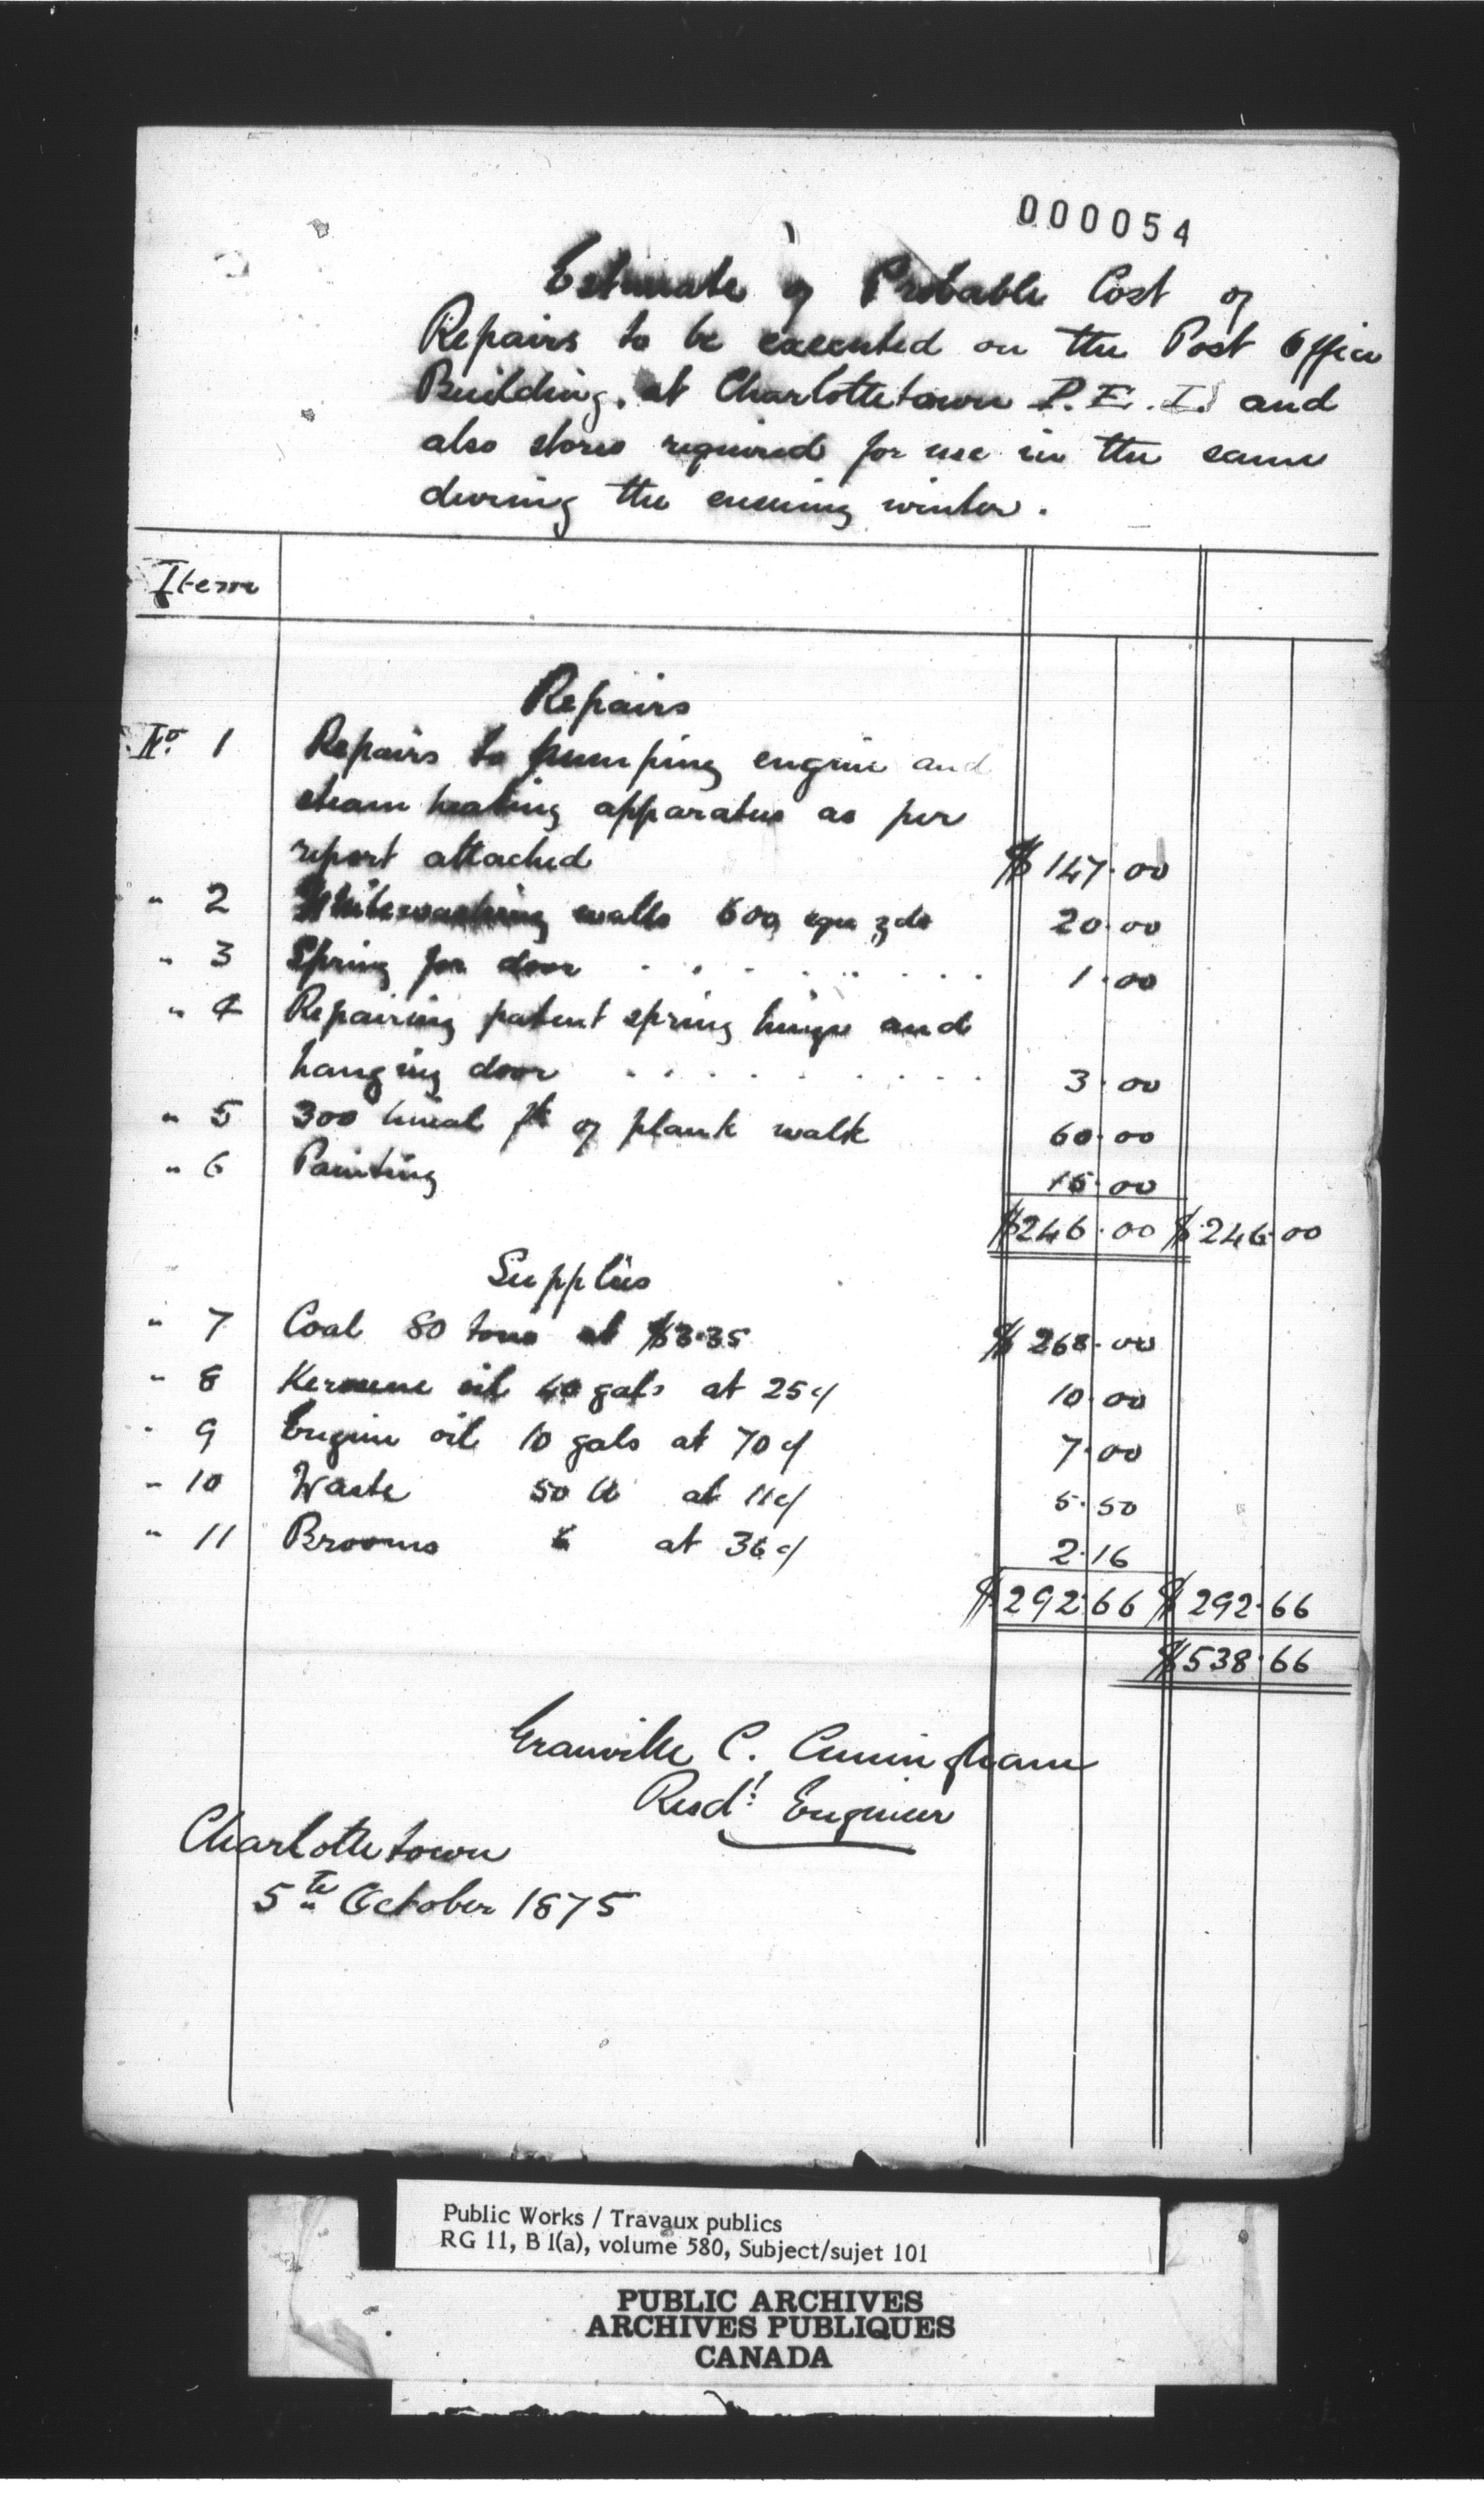 000054
Estimate of Probable Cost of
Repairs to be executed on the Post Office
Building, at Charlottetown P.E.I. and
also stores required for use in the same
during the ensuing winter.
Item
Repairs
No. 1 Repairs to pumping engine and
steam heating apparatus as per
report attached $ 147.00
" 2 Whitewashing walls 600 squ yds 20.00
" 3 Spring for door . . . . . . . . 1.00
" 4 Repairing patent spring hinge and
hanging door . . . . . . . . 3.00
" 5 300 lineal ft of plank walk 60.00
" 6 Painting 15.00
$246.00 $246.00
Supplies
" 7 Coal 80 tons at $3.35 $ 268.00
" 8 Kerosene oil 40 gals at 25c/ 10.00
" 9 Engine oil 10 gals at 70c/ 7.00
" 10 Waste 50 lb at 11c/ 5.50
" 11 Brooms 6 at 36c/ 2.16
$292.66 $292.66
$538.66
Granville C. Cuningham
Resdt. Engineer
Charlottetown
5th October 1875
Public Works / Travaux publics
RG 11, B 1(a), volume 580, Subject/sujet 101
PUBLIC ARCHIVES
ARCHIVES PUBLIQUES
CANADA